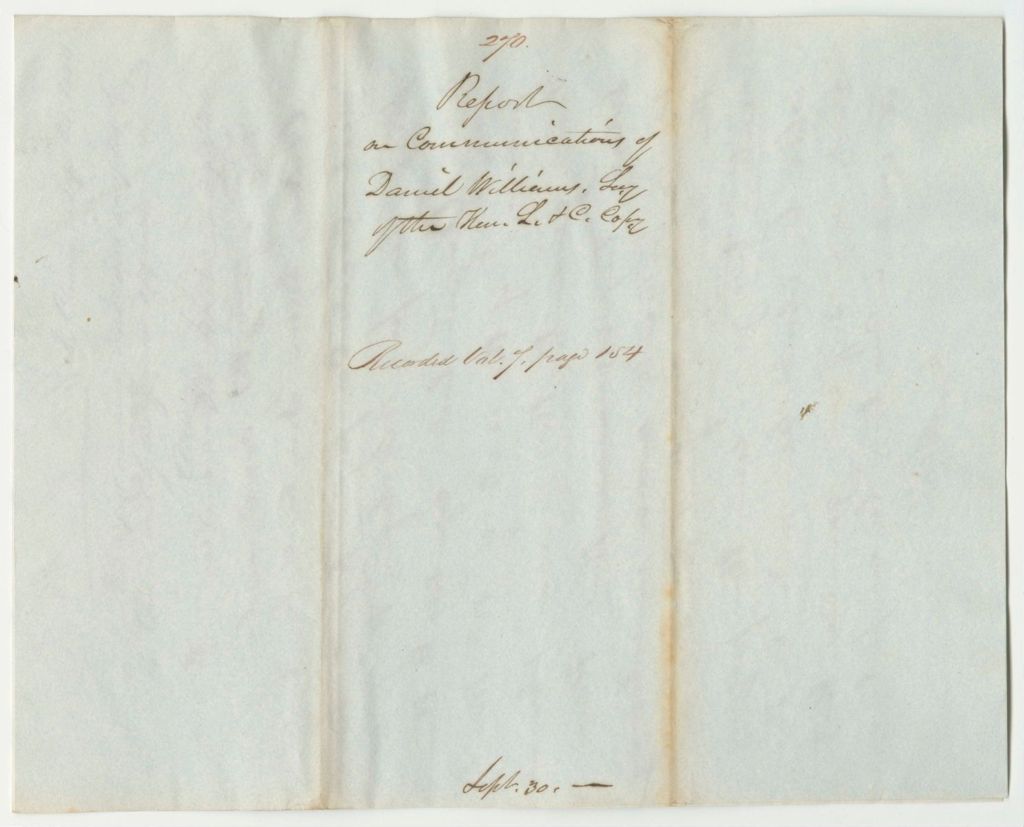 270.
Report
on Communications of
Daniel Williams, Supt
of the Ken. L. & C. Copy
Recorded Vol. 7. page 154
Sept. 30. —